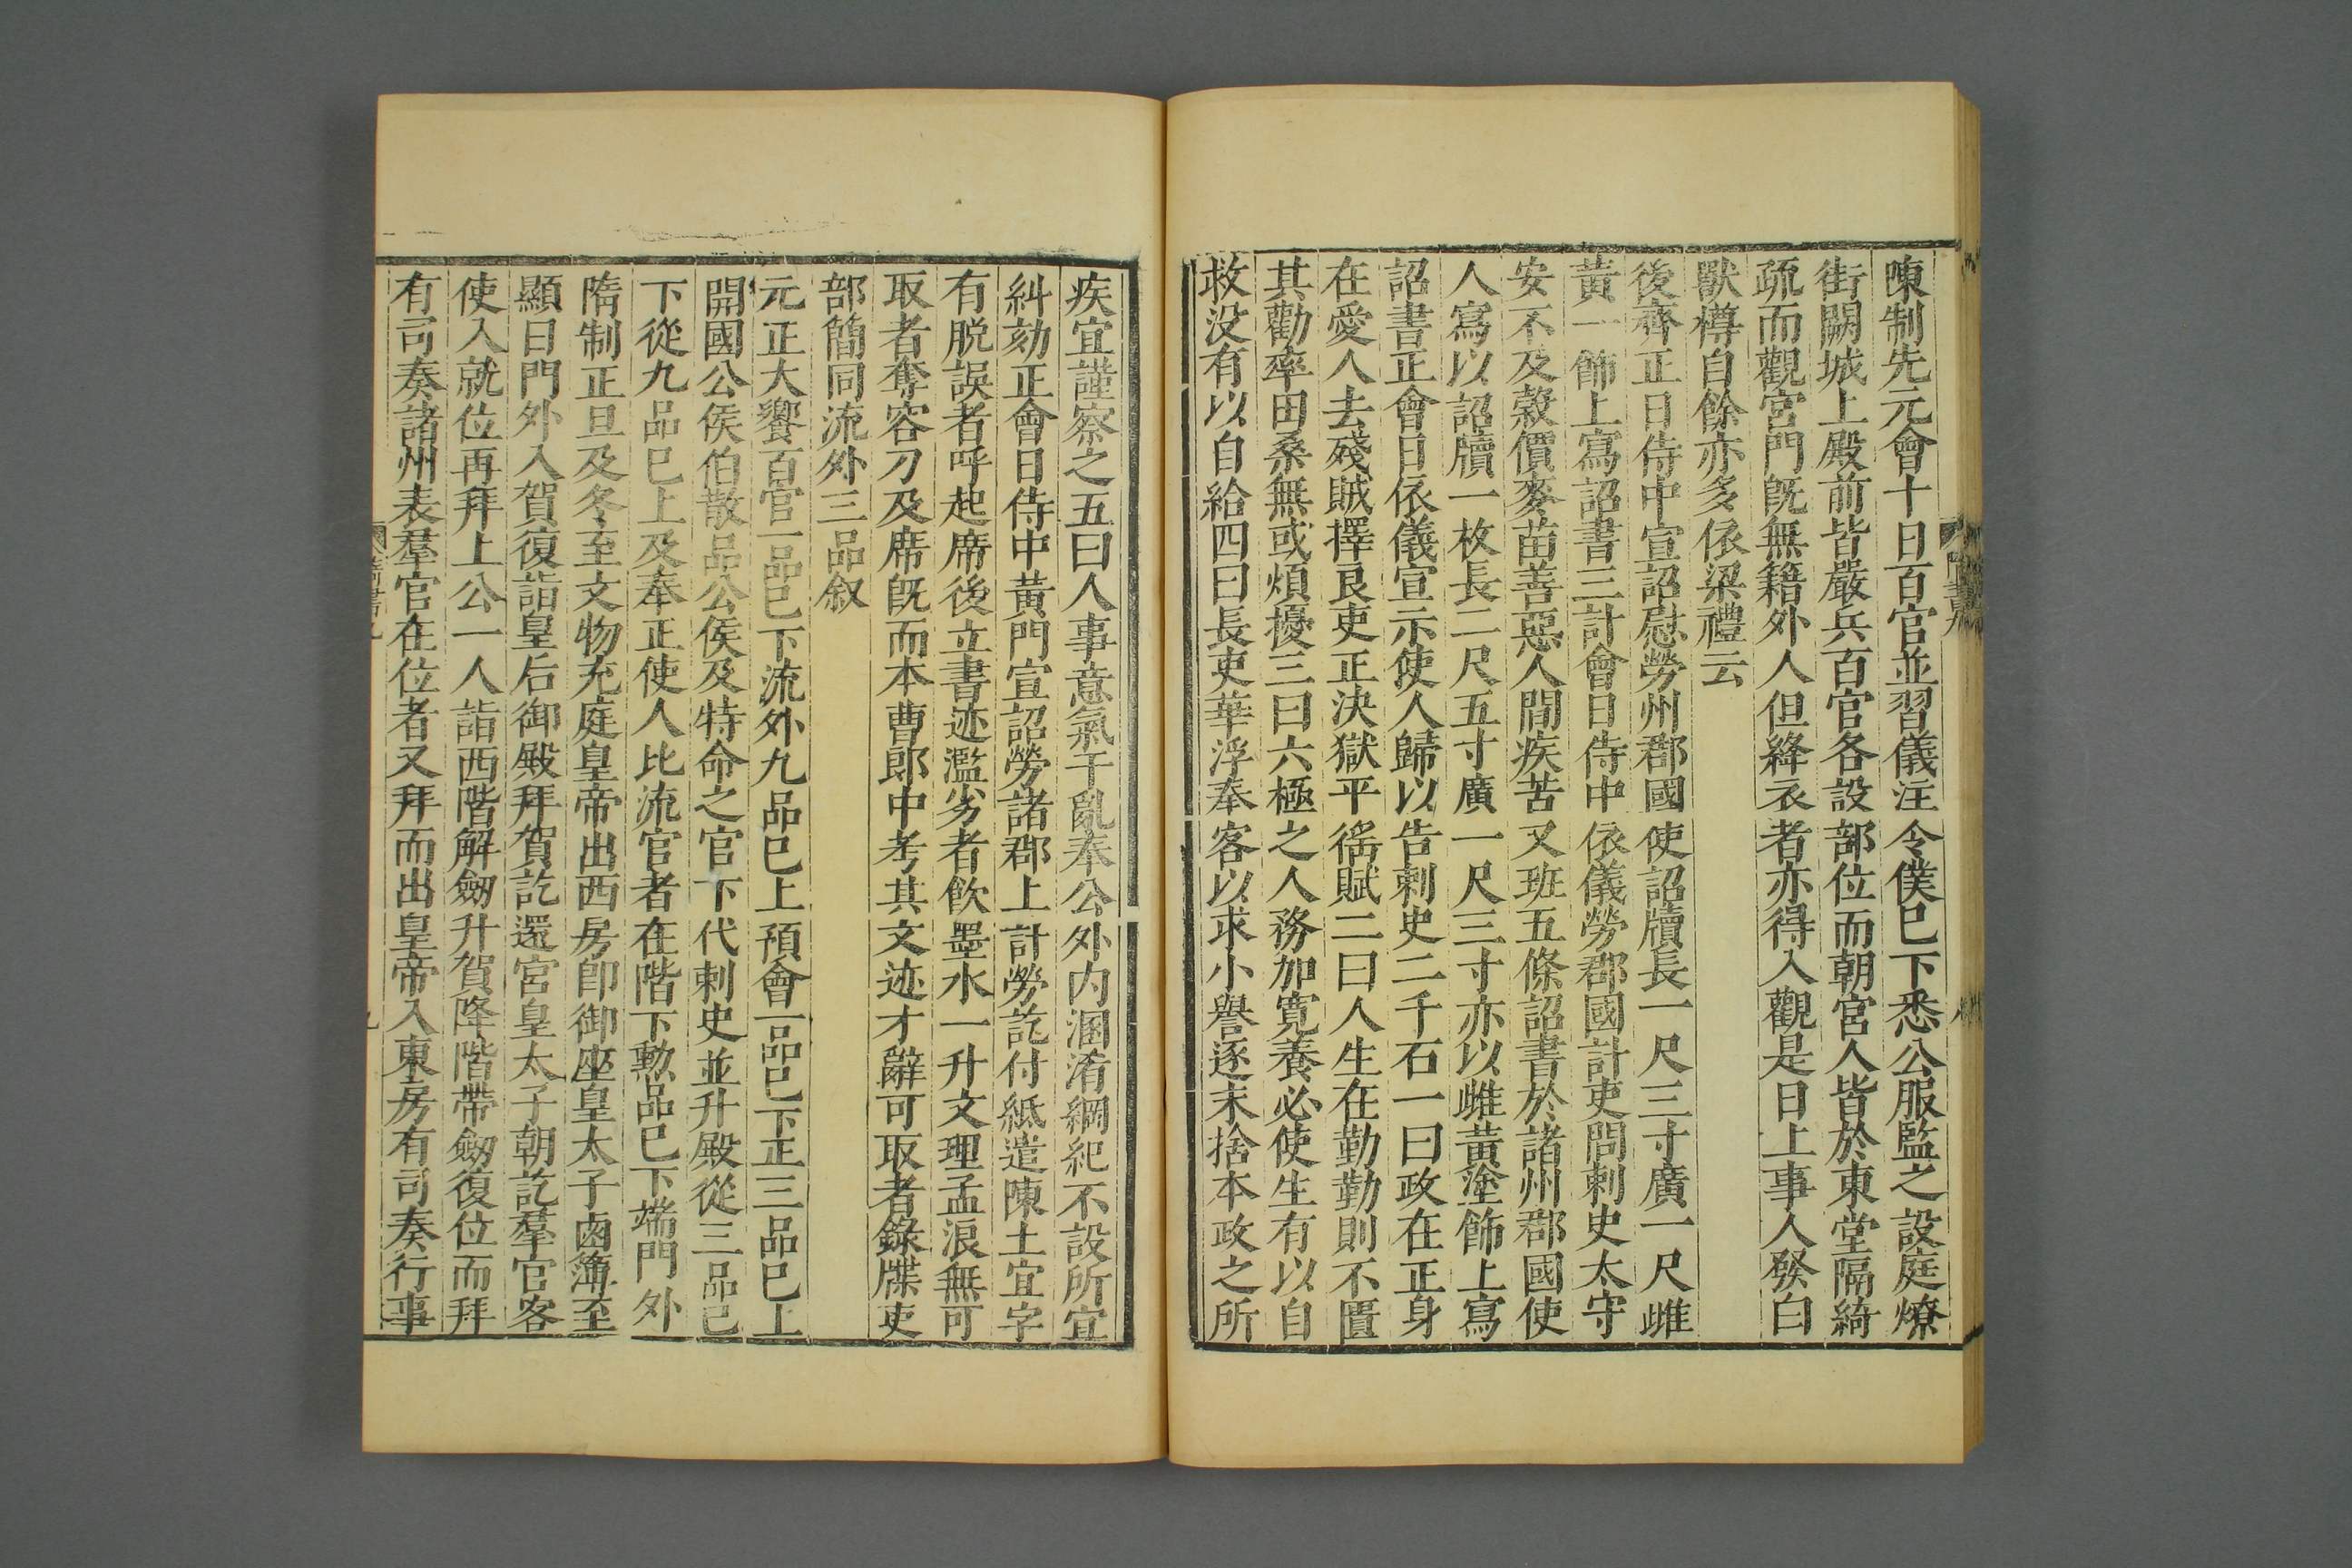 陳制先元會十日百官並習儀注令僕已下悉公服監之設庭燎
街闕城上殿前皆嚴兵百官各設部位而朝宮人皆於東堂隔綺
疏而觀宮門旣無籍外人但絳衣者亦得入觀是日上事人發白
獸樽自餘亦多依梁禮云
後齊正日侍中宣詔慰勞州郡國使詔牘長一尺三寸廣一尺雌
黃一飾上寫詔書三計會日侍中依儀勞郡國計吏問刺史太守
安不及穀價麥苗善惡人間疾苦又班五條詔書於諸州郡國使
人寫以詔牘一枚長二尺五寸廣一尺三寸亦以雌黃塗飾上寫
詔書正會日依儀宣示使人歸以告刺史二千石一曰政在正身
在愛人去殘賊擇良吏正決獄平徭賦二曰人生在勤勤則不匱
其勸率田桑無或煩擾三曰六極之人務加寬養必使生有以自
救没有以自給四曰長吏華浮奉客以求小譽逐末捨本政之所
疾宜謹察之五曰人事意氣干亂奉公外内溷淆綱紀不設所宜
糾劾正會日侍中黃門宣詔勞諸郡上計勞訖付紙遣陳土宜字
有脱誤者呼起席後立書迹濫劣者飲墨水一升文理孟浪無可
取者奪容刀及席旣而本曹郎中考其文迹才辭可取者錄牒吏
部簡同流外三品叙
元正大饗百官一品已下流外九品已上預會一品已下正三品已上
開國公侯伯散品公侯及特命之官下代刺史並升殿從三品已
下從九品已上及奉正使人比流官者在階下勳品已下端門外
隋制正旦及冬至文物充庭皇帝出西房卽御座皇太子鹵簿至
顯日門外入賀復詣皇后御殿拜賀訖還宮皇太子朝訖羣官客
使入就位再拜上公一人詣西階解劒升賀降階帶劒復位而拜
有司奏諸州表羣官在位者又拜而出皇帝入東房有司奏行事